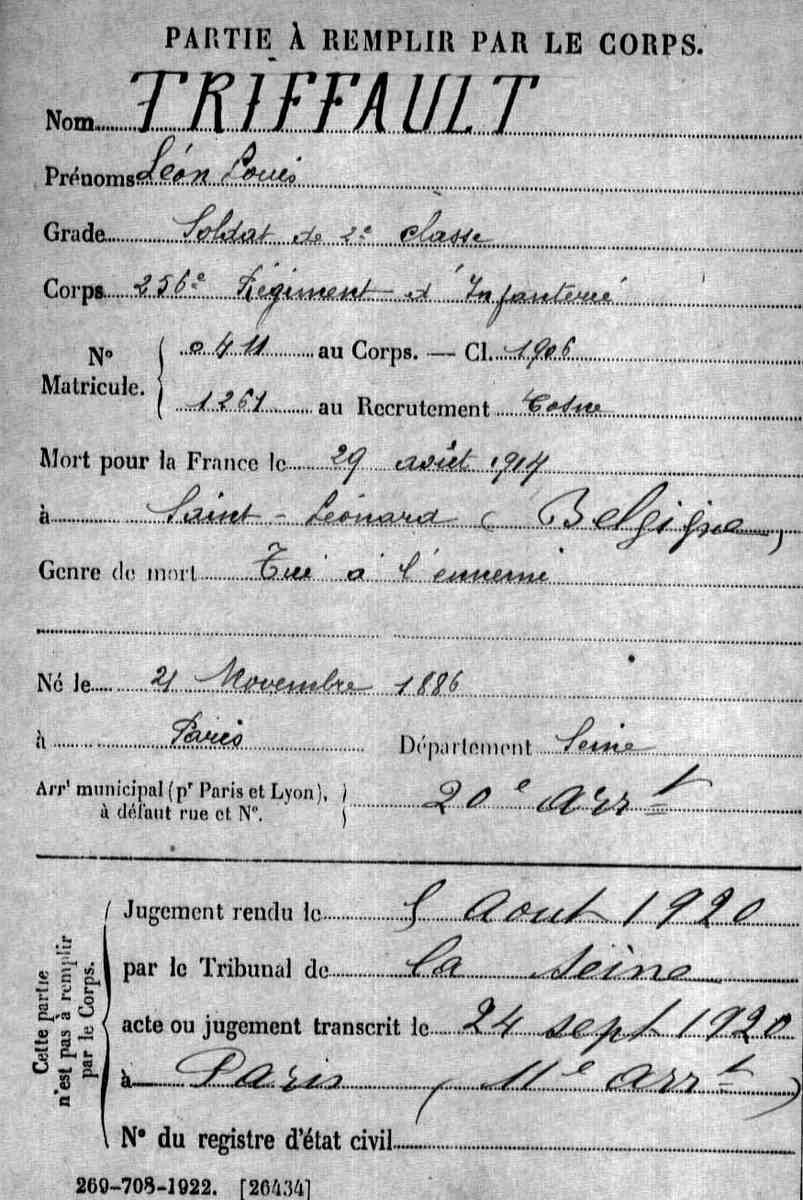 PARTIE À REMPLIR PAR LE CORPS.
Nom TRIFFAULT
Prénoms Léon Louis
Grade Soldat de 2e classe
Corps 256e Régiment d'Infanterie
No Matricule. 0411 au Corps. — Cl. 1906
1261 au Recrutement Cosne
Mort pour la France le 29 août 1914
à Saint-Léonard (Belgique)
Genre de mort Tué à l'ennemi
Né le 21 Novembre 1886
à Paris Département Seine
Arrt municipal (pr Paris et Lyon), à défaut rue et No. 20e arrt
Cette partie n'est pas à remplir par le Corps.
Jugement rendu le 5 Aout 1920
par le Tribunal de la Seine
acte ou jugement transcrit le 24 sept 1920
à Paris (11e arrt)
No du registre d'état civil
269-708-1922. [26434]